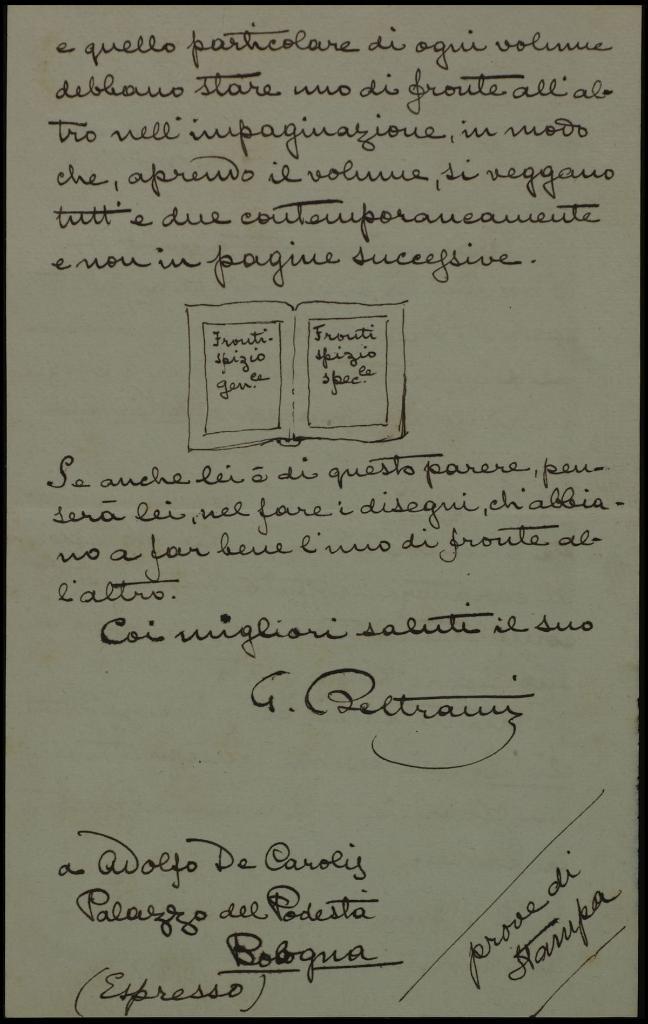 e quello particolare di ogni volume
debbano stare uno di fronte all'al-
tro nell'impaginazione, in modo
che, aprendo il volume, si veggano
tutt'e due contemporaneamente
e non in pagine successive.
Fronti-
spizio
gen.le
Fronti
spizio
spec.le
Se anche lei è di questo parere, pen-
serà lei, nel fare i disegni, ch'abbia-
no a far bene l'uno di fronte al-
l'altro.
Coi migliori saluti il suo
G. Beltrami
a Adolfo De Carolis
Palazzo del Podestà
Bologna
(Espresso)
prove di
stampa